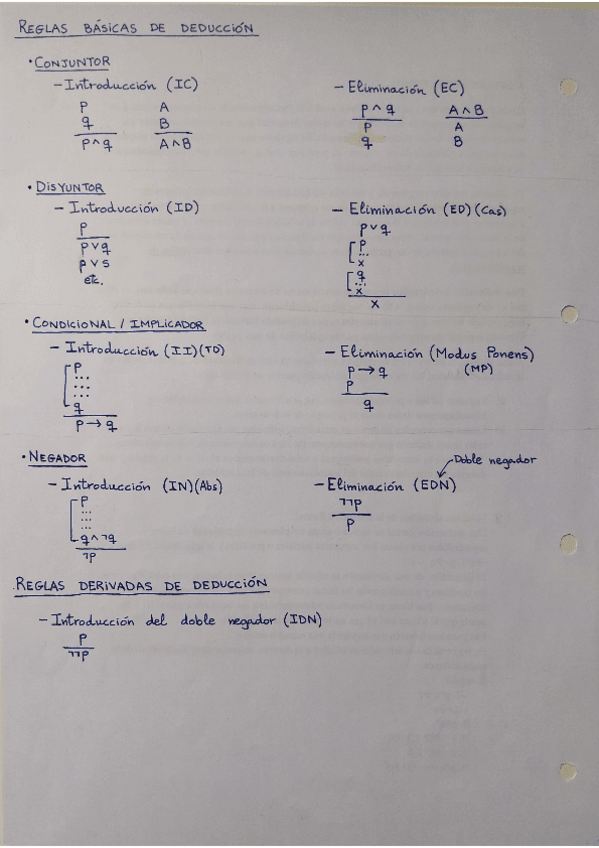 REGLAS BÁSICAS DE DEDUCCIÓN
· CONJUNTOR
- Introducción (IC)
p
q
p ∧ q
A
B
A ∧ B
- Eliminación (EC)
p ∧ q
p
q
A ∧ B
A
B
· DISYUNTOR
- Introducción (ID)
p
p v q
p v s
etc.
- Eliminación (ED) (Cas)
p v q
p
...
x
q
...
x
x
· CONDICIONAL / IMPLICADOR
- Introducción (II) (TD)
p
...
...
...
q
p → q
- Eliminación (Modus Ponens)
(MP)
p → q
p
q
· NEGADOR
- Introducción (IN) (Abs)
p
...
...
...
q ∧ ¬q
¬p
Doble negador
- Eliminación (EDN)
¬¬p
p
REGLAS DERIVADAS DE DEDUCCIÓN
- Introducción del doble negador (IDN)
p
¬¬p